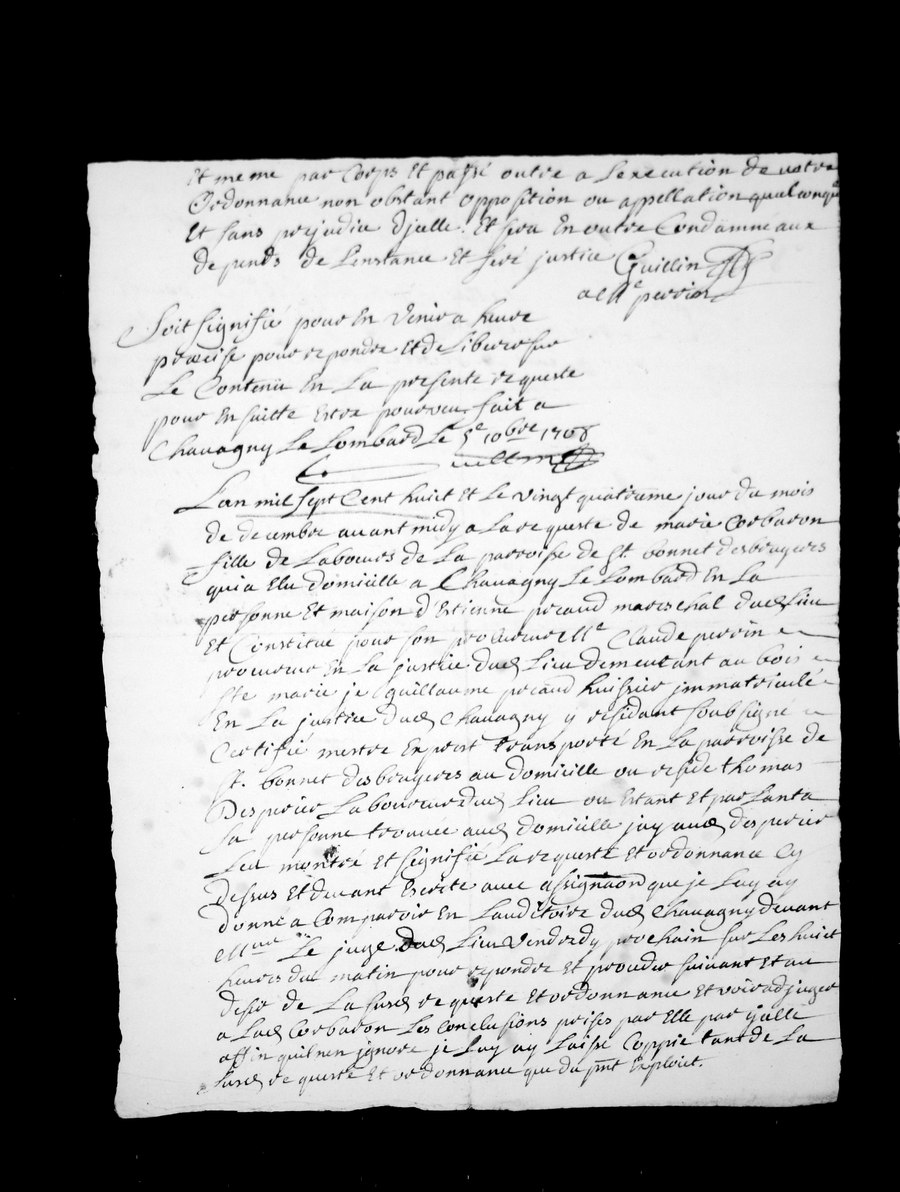 Et meme par Corps Et passé outre a Lexecution de votre
Ordonnance non obstant opposition ou appellation quelconque
Et sans prejudice dycelle. Et sera En outre Condamné aux
depends de Linstance Et feré justice Guillin
Me perrin
Soit signifié pour En Venir a heure
precise pour repondre Et deLiberer sur
Le Contenu En La presente requeste
pour En suitte Estre pourveu fait a
Chauagny Le Lombard Le 5e 10bre 1708
Lan mil sept Cent huict Et Le vingt quatrieme jour du mois
de decembre auant midy a La requeste de marie Corbaron
fille de Laboeurs de La parroisse de St. bonnet desbruyers
qui a Elu domicille a Chauagny Le Lombard En La
personne Et maison d'Estienne picaud mareschal dud Lieu
Et Constitue pour son procureur Me Claude perrin
procureur En La justice dud Lieu demeurant au bois
Ste marie je Guillaume picaud huissier jmmatriculé
En La justice dud Chauagny y residant soubsigne
Certifié mestre Exprest transporté En La parroisse de
St. bonnet desbruyers au domicille ou reside thomas
Desperier Laboureur dud Lieu ou Estant Et parLant a
sa personne trouuée aud domicille jay aud desperier
Leu montré Et signifié La requeste Et ordonnance Cy
dessus Et deuant Escrite auec assignaon que je Luy ay
donné a Comparoir En Lauditoire dud Chauagny deuant
Le juge dud Lieu Vendredy prochain sur Les huict
heures du matin pour repondre Et proceder suiuant Et au
desir de La susd requeste Et ordonnance Et voir adjuger
a Lad Corbaron Les Conclusions prises par Elle par ycelle
affin quil nen jgnore je Luy ay Laissé Coppie tant de La
susd requeste Et ordonnance que du pnt Exploict.